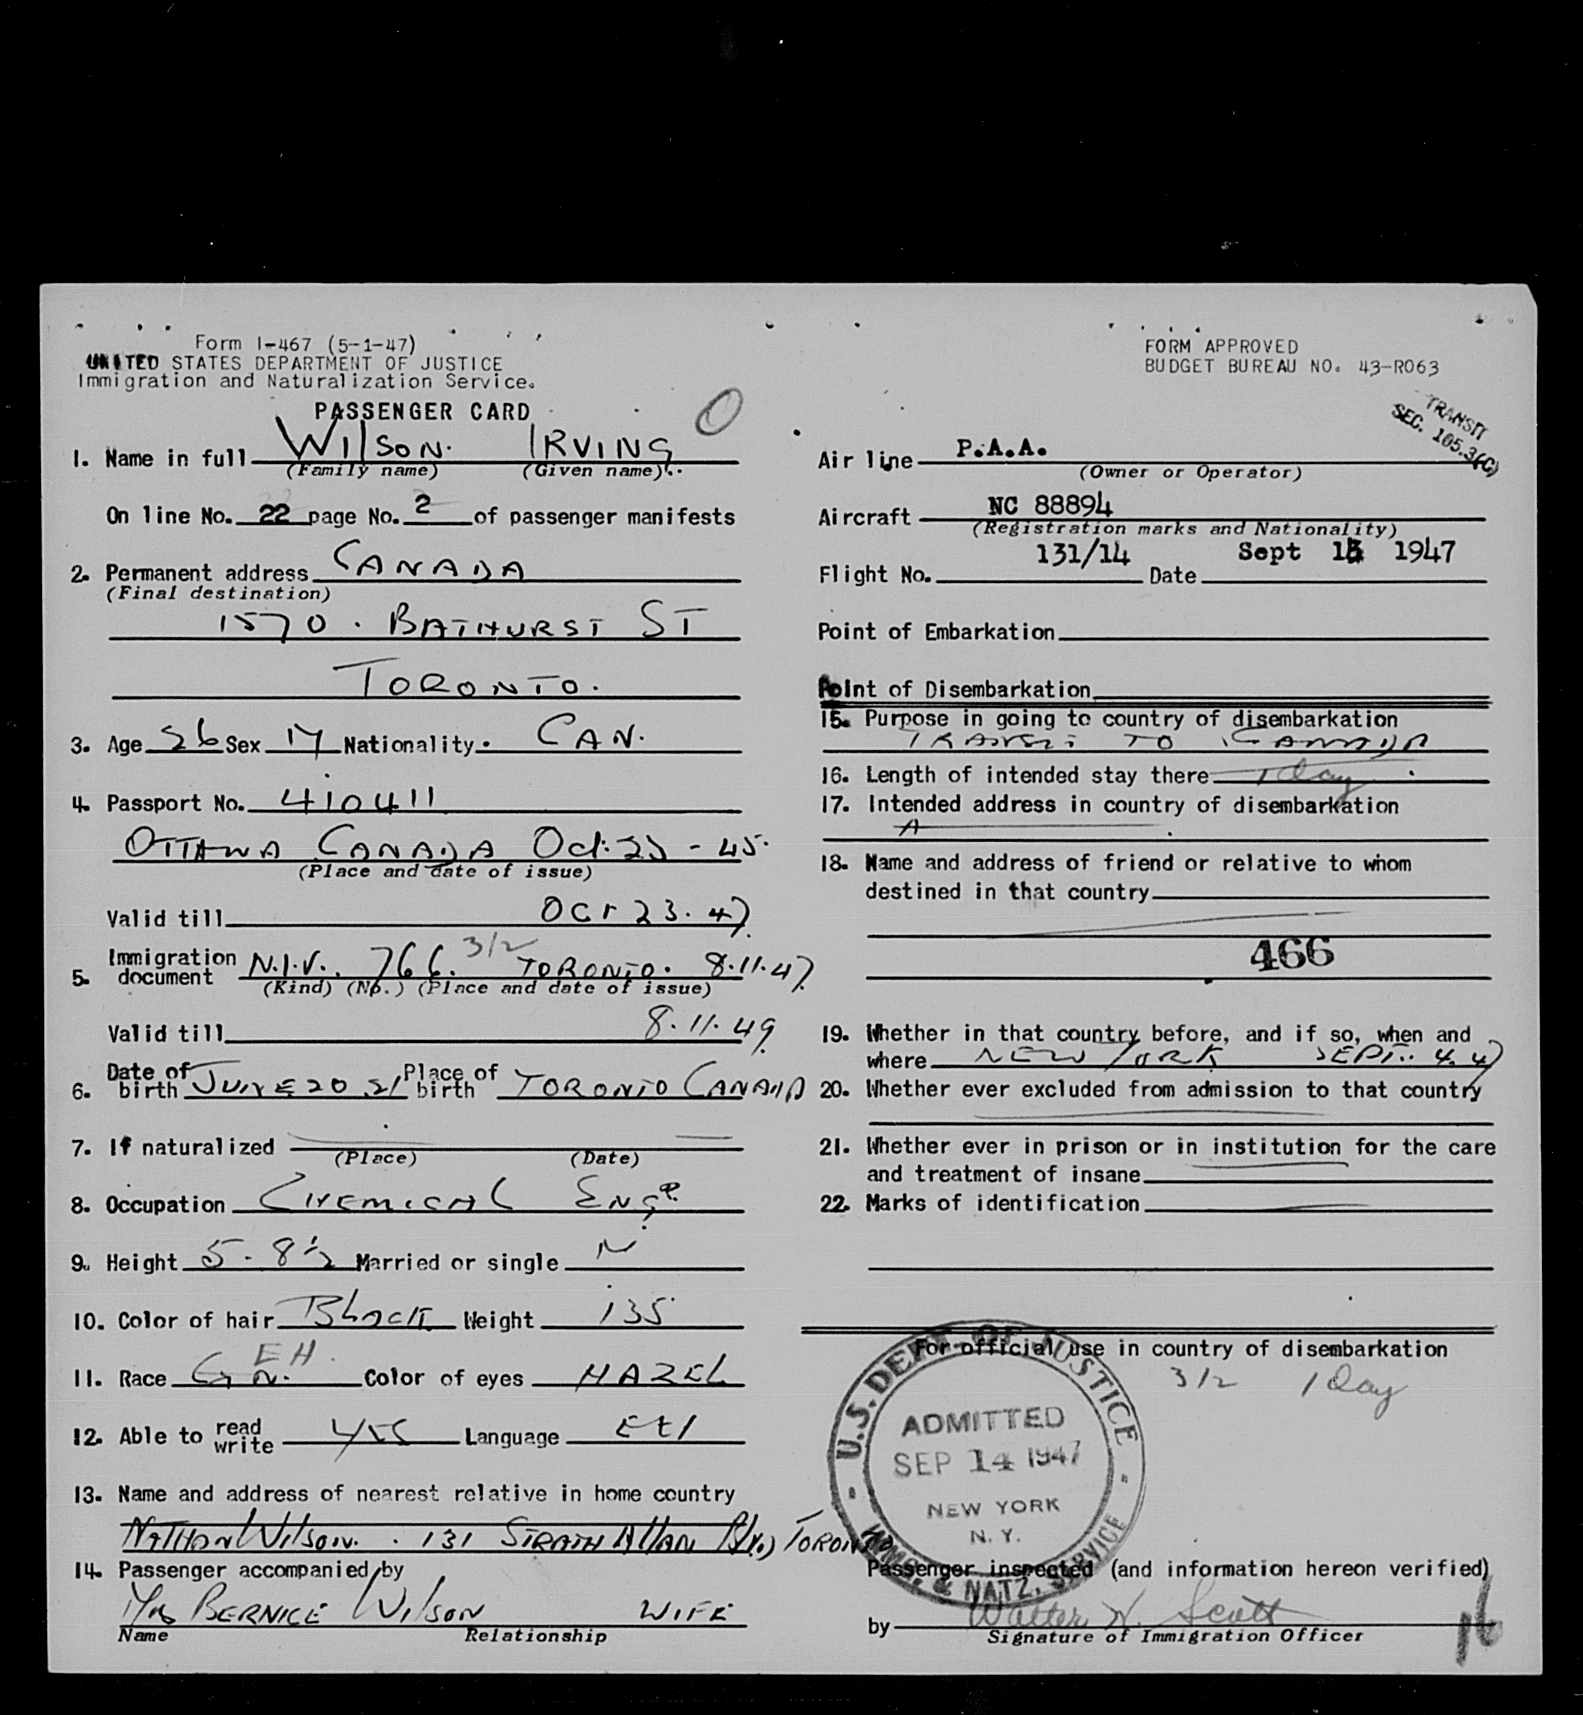 Form I-467 (5-1-47)
UNITED STATES DEPARTMENT OF JUSTICE
Immigration and Naturalization Service.
PASSENGER CARD
1. Name in full WILSON. IRVING
(Family name) (Given name)
On line No. 22 page No. 2 of passenger manifests
2. Permanent address CANADA
(Final destination)
1570 . BATHURST ST
TORONTO.
3. Age 26 Sex M Nationality. CAN.
4. Passport No. 410411
OTTAWA CANADA Oct. 23 - 45.
(Place and date of issue)
Valid till OCT 23. 47
5. Immigration document N.I.V. 766. 3/2 TORONTO. 8.11.47
(Kind) (No.) (Place and date of issue)
Valid till 8.11.49
6. Date of birth JUNE 20 21 Place of birth TORONTO CANADA
7. If naturalized
(Place) (Date)
8. Occupation CHEMICAL ENGR.
9. Height 5-8½ Married or single M
10. Color of hair BLACK Weight 135
11. Race EH Color of eyes HAZEL
12. Able to read write YES Language
13. Name and address of nearest relative in home country
NATHAN WILSON. 131 STRATHALLAN Blv.) TORONTO
14. Passenger accompanied by
Mrs BERNICE WILSON WIFE
Name Relationship
FORM APPROVED
BUDGET BUREAU NO. 43-R063
TRANSIT
SEC. 105.3(C)
Air line P.A.A.
(Owner or Operator)
Aircraft NC 88894
(Registration marks and Nationality)
Flight No. 131/14 Date Sept 1947
Point of Embarkation
Point of Disembarkation
15. Purpose in going to country of disembarkation
TRANSIT TO CANADA
16. Length of intended stay there 1 day
17. Intended address in country of disembarkation
18. Name and address of friend or relative to whom
destined in that country
466
19. Whether in that country before, and if so, when and
where NEW YORK SEPT. 4. 47
20. Whether ever excluded from admission to that country
21. Whether ever in prison or in institution for the care
and treatment of insane
22. Marks of identification
For official use in country of disembarkation
3/2 1 Day
U.S. DEPT. OF JUSTICE
ADMITTED
SEP 14 1947
NEW YORK
N. Y.
IMMG. & NATZ. SERVICE
Passenger inspected (and information hereon verified)
by Walter W. Scott
Signature of Immigration Officer
16